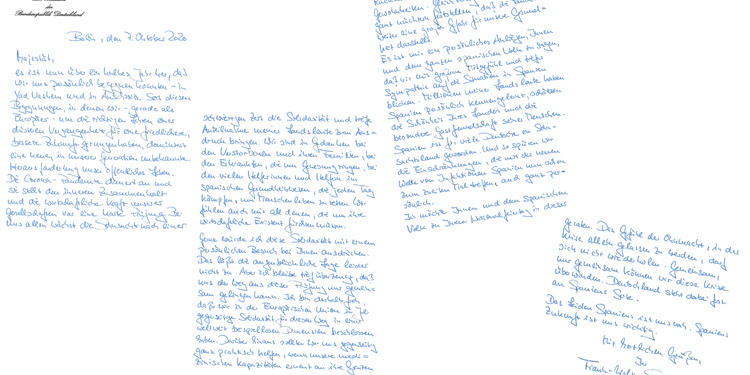 der
Bundesrepublik Deutschland
Berlin, den 7. Oktober 2020
Majestät,
es ist nun über ein halbes Jahr her, daß
wir uns persönlich begegnen konnten - in
Yad Vashem und in Auschwitz. Seit diesen
Begegnungen, in denen wir - gerade als
Europäer - um die richtigen Lehren einer
düsteren Vergangenheit für eine friedlichere,
bessere Zukunft gerungen haben, dominiert
eine neue, in unseren Jahrzehnten unbekannte
Herausforderung unser öffentliches Leben.
Die Corona-Pandemie dauert an und
sie stellt den inneren Zusammenhalt
und die wirtschaftliche Kraft unserer
Gesellschaften vor eine harte Prüfung. Bei
uns allen wächst die Sehnsucht nach einer
schwierigen Zeit die Solidarität und tiefe
Anteilnahme meiner Landsleute zum Aus-
druck bringen. Wir sind in Gedanken bei
den Verstorbenen und ihren Familien, bei
den Erkrankten, die um Genesung ringen, bei
den vielen Helferinnen und Helfern im
spanischen Gesundheitswesen, die jeden Tag
kämpfen, um Menschenleben zu retten. Wir
fühlen auch mit all denen, die um ihre
wirtschaftliche Existenz fürchten müssen.
Gerne würde ich diese Solidarität mit einem
persönlichen Besuch bei Ihnen ausdrücken.
Das läßt die augenblickliche Lage leider
nicht zu. Aber ich bleibe tief überzeugt, daß
uns der Weg aus dieser Prüfung nur gemein-
sam gelingen kann. Ich bin dankbar dafür,
daß wir in der Europäischen Union im Juli
gegenseitige Solidarität für diesen Weg in einer
weltweit beispiellosen Dimension beschlossen
haben. Darüber hinaus sollten wir uns gegenseitig
ganz praktisch helfen, wenn unsere medi-
zinischen Kapazitäten erneut an ihre Grenzen
Gewohnheiten.
ganz nüchtern feststellen, daß die
weiter eine große Gefahr für unsere Gesund-
heit darstellt.
Es ist mir ein persönliches Anliegen, Ihnen
und dem ganzen spanischen Volk zu sagen,
daß wir mit großem Mitgefühl und tiefer
Sympathie auf die Situation in Spanien
blicken. Millionen meiner Landsleute haben
Spanien persönlich kennengelernt, schätzen
die Schönheit Ihres Landes und die
besondere Gastfreundschaft seiner Menschen.
Spanien ist für viele Deutsche ein Sehn-
suchtsland geworden. Und so spüren wir
die Erschütterungen, die mit der neuen
Welle von Infektionen Spanien nun schon
zum zweiten Mal treffen, auch ganz per-
sönlich.
Ich möchte Ihnen und dem spanischen
Volk zu Ihrem Nationalfeiertag in dieser
geraten. Das Gefühl der Ohnmacht, in der
Krise allein gelassen zu werden, darf
sich nicht wiederholen. Gemeinsam,
nur gemeinsam können wir diese Krise
überwinden. Deutschland steht dabei fest
an Spaniens Seite.
Das Leiden Spaniens ist uns nah. Spaniens
Zukunft ist uns wichtig.
Mit herzlichen Grüßen,
Ihr